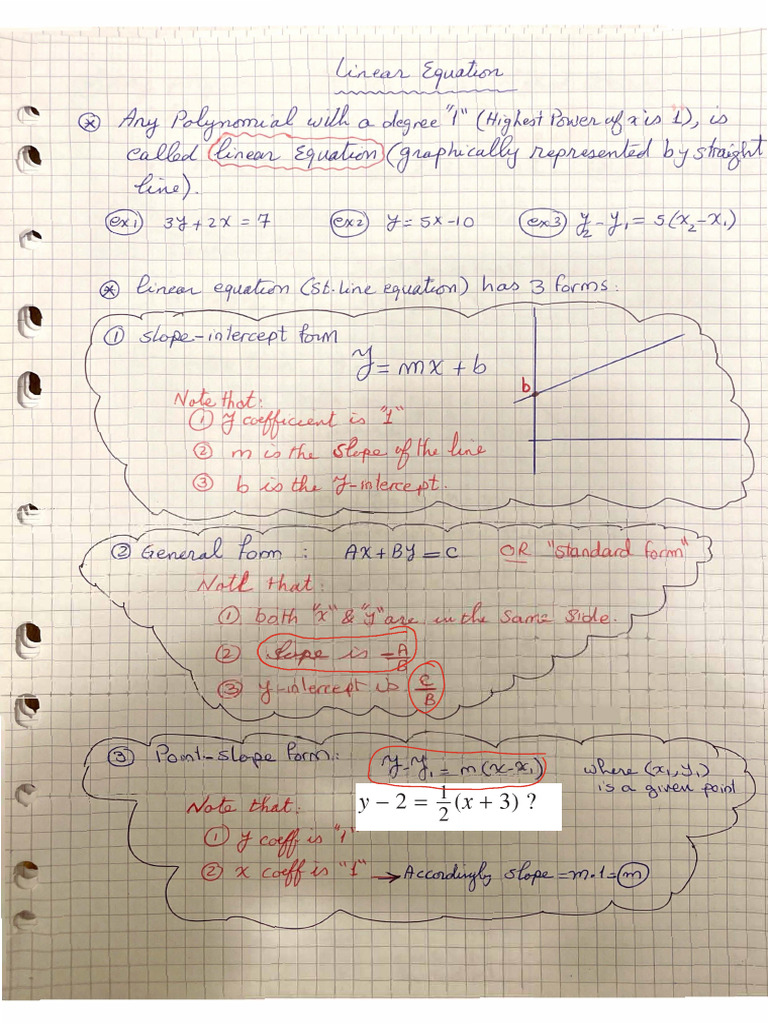 Linear Equation
⊛ Any Polynomial with a degree "1" (Highest Power of x is 1), is
called (linear Equation) (graphically represented by straight
line).
ex1) 3y + 2x = 7 ex2 y = 5x - 10 ex3) y₂ - y₁ = 5(x₂ - x₁)
⊛ linear equation (St. line equation) has 3 forms:
① Slope-intercept form
y = mx + b
b
Note that:
① y coefficient is "1"
② m is the slope of the line
③ b is the y-intercept.
② General form : Ax + By = C OR "Standard form"
Note that:
① both "x" & "y" are in the same side.
② Slope is -A/B
③ y-intercept is C/B
③ Point-slope form: y - y₁ = m(x - x₁) where (x₁, y₁)
is a given point
y − 2 = 1/2 (x + 3) ?
Note that:
① y coeff is "1"
② x coeff is "1" → Accordingly slope = m·1 = m